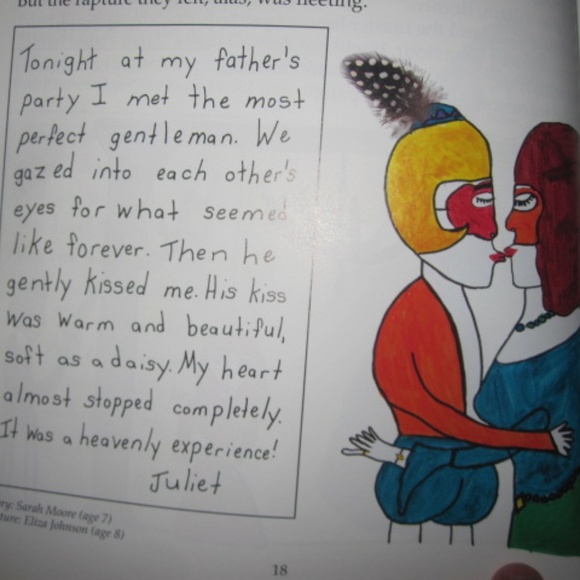 But the rapture they felt, alas, was fleeting.
Tonight at my father's
party I met the most
perfect gentleman. We
gazed into each other's
eyes for what seemed
like forever. Then he
gently kissed me. His kiss
was warm and beautiful,
soft as a daisy. My heart
almost stopped completely.
It was a heavenly experience!
Juliet
Sarah Moore (age 7)
Eliza Johnson (age 8)
18